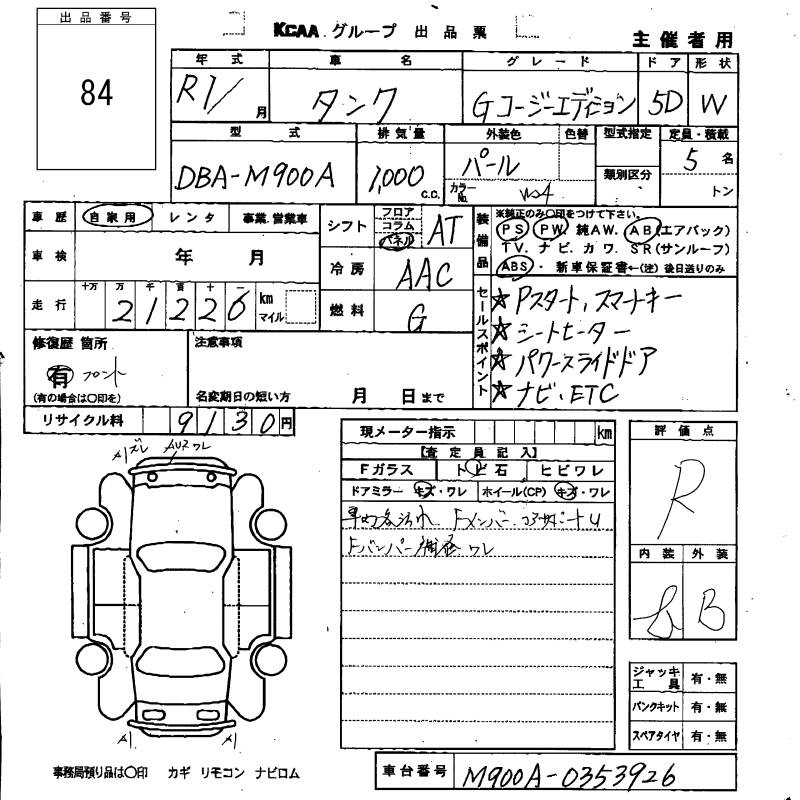 出品番号
84
KCAA グループ 出品票
主催者用
年式 車名 グレード ドア 形状
R1/ 月 タンク Gコージーエディション 5D W
型式 排気量 外装色 色替 型式指定 定員・積載
DBA-M900A 1,000 C.C. パール 類別区分 5 名
カラーNo. W24 トン
車歴 自家用 レンタ 事業.営業車
車検 年 月
走行 十万 万 千 百 十 一
21226 km マイル
シフト フロア コラム パネル AT
冷房 AAC
燃料 G
装備品 ※純正のみ〇印をつけて下さい。
PS PW 純AW. AB(エアバック)
TV. ナビ. カワ. SR(サンルーフ)
ABS・新車保証書←(注)後日送りのみ
セールスポイント
☆Pスタート,スマートキー
☆シートヒーター
☆パワースライドドア
☆ナビ、ETC
修復歴 箇所
有 フロント
(有の場合は〇印を)
注意事項
名変期日の短い方 月 日まで
リサイクル料 9130円
現メーター指示 km
【査定員記入】
Fガラス トビ石 ヒビワレ
ドアミラー キズ・ワレ ホイール(CP) キズ・ワレ
Fバンパー補修 ワレ
評価点
R
内装 外装
B
ジャッキ工具 有・無
パンクキット 有・無
スペアタイヤ 有・無
Aズレ AU2ワレ
A A
事務局預り品は〇印 カギ リモコン ナビロム
車台番号 M900A-0353926